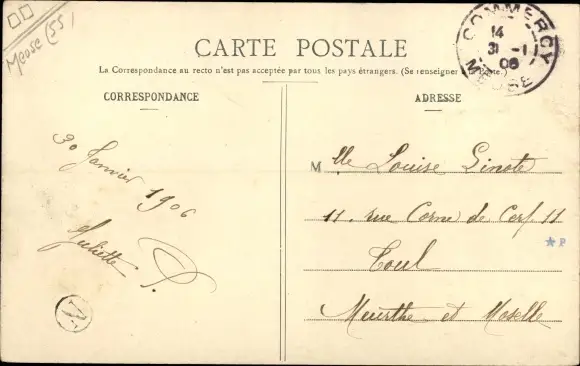 Meuse (55)
COMMERCY
14
31 -1
06
MEUSE
CARTE POSTALE
La Correspondance au recto n'est pas acceptée par tous les pays étrangers. (Se renseigner
CORRESPONDANCE
ADRESSE
30 Janvier 1906
Juliette P.
Mlle Louise Sinote
11. rue Corne de Cerf 11
Toul
Meurthe et Moselle